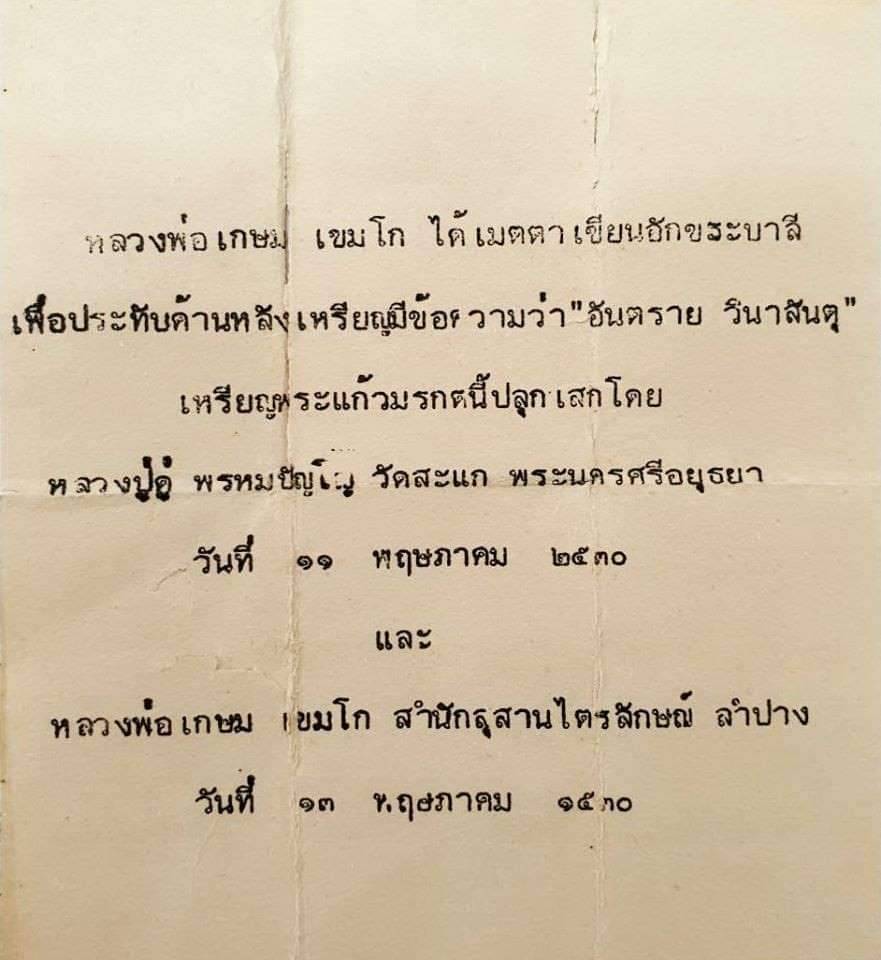 หลวงพ่อเกษม เขมโก ได้เมตตาเขียนอักขระบาลี
เพื่อประทับด้านหลังเหรียญมีข้อความว่า"อันตราย วินาสันตุ"
เหรียญพระแก้วมรกตนี้ปลุกเสกโดย
หลวงปู่ดู่ พรหมปัญโญ วัดสะแก พระนครศรีอยุธยา
วันที่ ๑๑ พฤษภาคม ๒๕๓๐
และ
หลวงพ่อเกษม เขมโก สำนักสุสานไตรลักษณ์ ลำปาง
วันที่ ๑๓ พฤษภาคม ๑๕๓๐